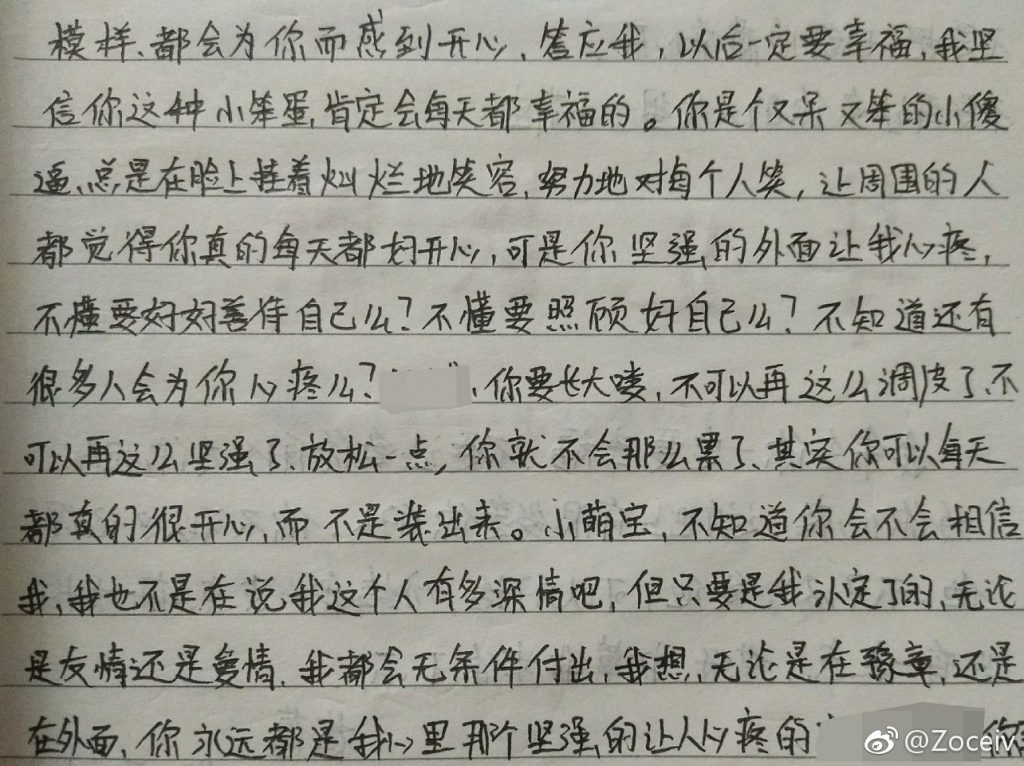 模样、都会为你而感到开心，答应我，以后一定要幸福，我坚
信你这种小笨蛋，肯定会每天都幸福的。你是个又呆又笨的小傻
逼，总是在脸上挂着灿烂地笑容，努力地对每个人笑，让周围的人
都觉得你真的每天都好开心，可是你坚强的外面让我心疼，
不懂要好好善待自己么？不懂要照顾好自己么？不知道还有
很多人会为你心疼么？、你要长大喽，不可以再这么调皮了、不
可以再这么坚强了、放松一点，你就不会那么累了、其实你可以每天
都真的很开心，而不是装出来。小萌宝，不知道你会不会相信
我，我也不是在说我这个人有多深情吧，但只要是我认定了的，无论
是友情还是爱情，我都会无条件付出，我想，无论是在豫章，还是
在外面，你永远都是我心里那个坚强的让人心疼的
@Zoceiv